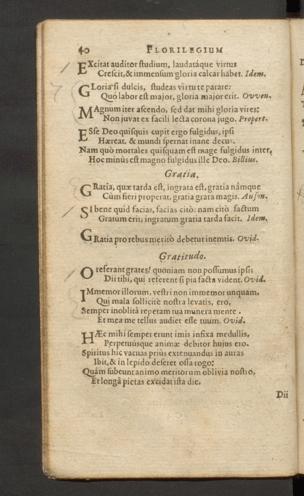 40 FLORILEGIUM
EXcitat auditor studium, laudatáque virtus
Crescit, & immensum gloria calcar habet. Idem.
GLoria si dulcis, studeas virtute parare:
Quó labor est major, gloria major erit. Owen.
MAgnum iter ascendo, sed dat mihi gloria vires:
Non juvat ex facili lecta corona jugo. Propert.
ESse Deo quisquis cupit ergo fulgidus, ipsi
Hæreat, & mundi spernat inane decus.
Nam quò mortales quisquam est magè fulgidus inter,
Hoc minùs est magno fulgidus ille Deo. Billius.
Gratia.
GRatia, quæ tarda est, ingrata est, gratia námque
Cùm fieri properat, gratia grata magis. Auson.
SI bene quid facias, facias citò: nam citò factum
Gratum erit; ingratum gratia tarda facit. Idem.
GRatia pro rebus meritò debetur inemtis. Ovid.
Gratitudo.
O referant grates! quoniam non possumus ipsi
Dii tibi, qui referent si pia facta vident. Ovid.
IMmemor illorum, vestri non immemor unquam,
Qui mala sollicitè nostra levatis, ero.
Semper inoblitâ repetam tua munera mente,
Et mea me tellus audiet esse tuum. Ovid.
HÆc mihi semper erunt imis infixa medullis,
Perpetuusque animæ debitor hujus ero.
Spiritus hic vacuas priùs extenuandus in auras
Ibit, & in lepido deseret ossa rogo:
Quàm subeunt animo meritorum oblivia nostro,
Et longâ pietas excidat ista die.
Dii